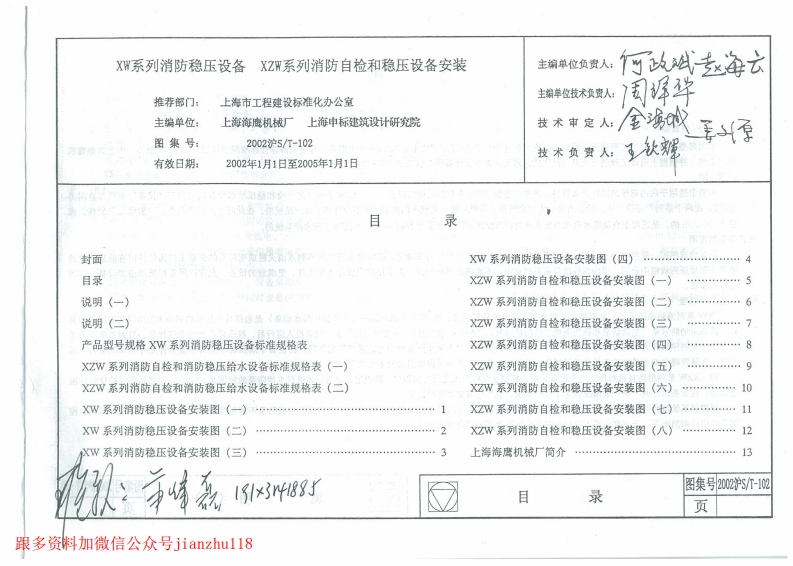 XW系列消防稳压设备 XZW系列消防自检和稳压设备安装
推荐部门： 上海市工程建设标准化办公室
主编单位： 上海海鹰机械厂 上海申标建筑设计研究院
图集号： 2002沪S/T-102
有效日期： 2002年1月1日至2005年1月1日
主编单位负责人：
主编单位技术负责人：
技术审定人：
技术负责人：
目 录
封面
目录
说明（一）
说明（二）
产品型号规格 XW系列消防稳压设备标准规格表
XZW系列消防自检和消防稳压给水设备标准规格表（一）
XZW系列消防自检和消防稳压给水设备标准规格表（二）
XW系列消防稳压设备安装图（一） 1
XW系列消防稳压设备安装图（二） 2
XW系列消防稳压设备安装图（三） 3
XW系列消防稳压设备安装图（四） 4
XZW系列消防自检和稳压设备安装图（一） 5
XZW系列消防自检和稳压设备安装图（二） 6
XZW系列消防自检和稳压设备安装图（三） 7
XZW系列消防自检和稳压设备安装图（四） 8
XZW系列消防自检和稳压设备安装图（五） 9
XZW系列消防自检和稳压设备安装图（六） 10
XZW系列消防自检和稳压设备安装图（七） 11
XZW系列消防自检和稳压设备安装图（八） 12
上海海鹰机械厂简介 13
目 录
图集号 2002沪S/T-102
页
跟多资料加微信公众号jianzhu118